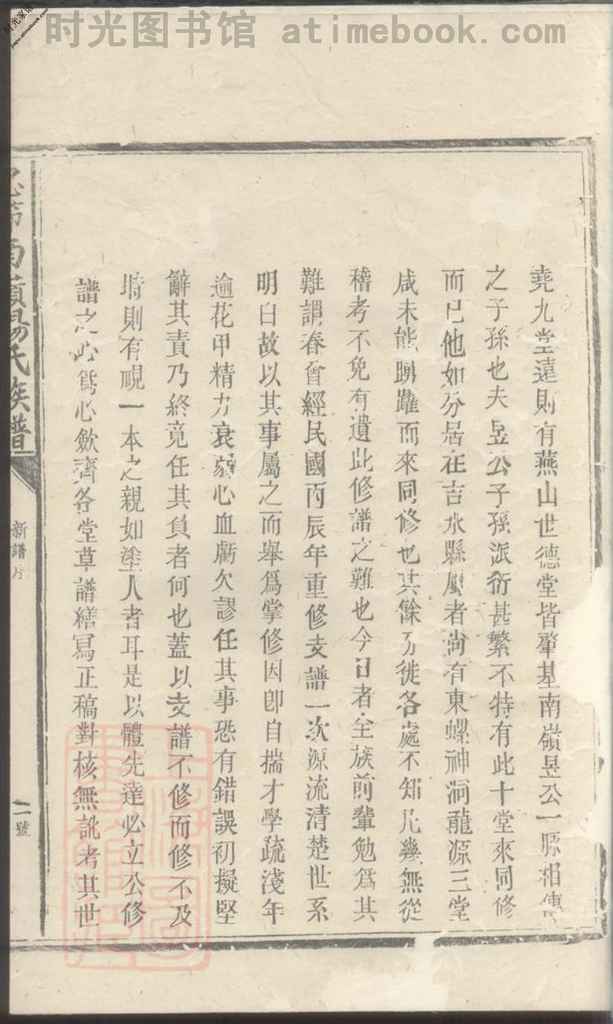 时光图书馆 atimebook.com
堯九堂遠則有燕山世德堂皆肇基南嶺昱公一脈相傳
之子孫也夫昱公子孫派衍甚繁不特有此十堂來同修
而已他如分居在吉水縣屬者尚有東螺神洞龍源三堂
咸未能踴躍而來同修也其餘分徙各處不知凡幾無從
稽考不免有遺此修譜之難也今日者全族前輩勉爲其
難謂春曾經民國丙辰年重修支譜一次源流清楚世系
明白故以其事屬之而舉爲掌修因卽自揣才學疏淺年
逾花甲精力衰弱心血虧欠謬任其事恐有錯誤初擬堅
辭其責乃終竟任其負者何也蓋以支譜不修而修不及
時則有視一本之親如塗人者耳是以體先達必立公修
譜之心爲心歛齊各堂草譜繕寫正稿對核無訛者其世
南嶺楊氏族譜
新譜序
二號